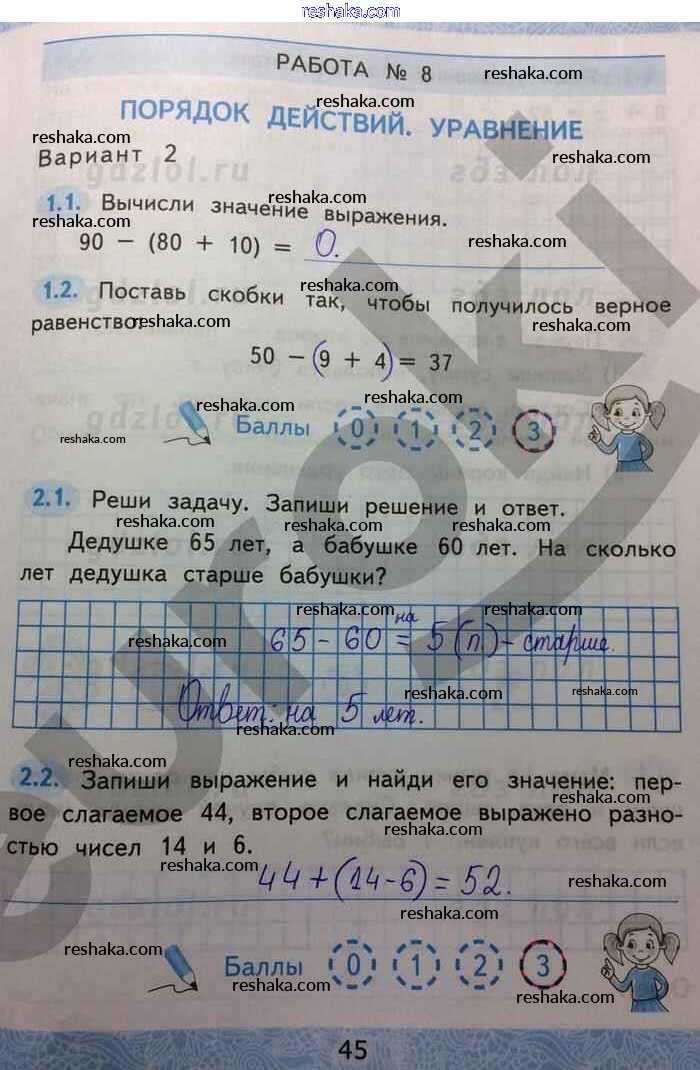 reshaka.com
РАБОТА № 8 reshaka.com
reshaka.com
ПОРЯДОК ДЕЙСТВИЙ. УРАВНЕНИЕ
reshaka.com reshaka.com
Вариант 2
gdzlol.ru
reshaka.com reshaka.com
1.1. Вычисли значение выражения.
reshaka.com
90 − (80 + 10) = 0. reshaka.com
1.2. Поставь скобки так, чтобы получилось верное
reshaka.com reshaka.com
равенство:
50 − (9 + 4) = 37
reshaka.com reshaka.com
Баллы 0 1 2 3
reshaka.com reshaka.com
2.1. Реши задачу. Запиши решение и ответ.
reshaka.com reshaka.com reshaka.com
Дедушке 65 лет, а бабушке 60 лет. На сколько
лет дедушка старше бабушки?
reshaka.com reshaka.com
на
65 − 60 = 5 (л.) - старше.
reshaka.com reshaka.com
reshaka.com reshaka.com
Ответ: на 5 лет.
reshaka.com
reshaka.com reshaka.com
2.2. Запиши выражение и найди его значение: пер-
reshaka.com
вое слагаемое 44, второе слагаемое выражено разно-
стью чисел 14 и 6.
reshaka.com reshaka.com
44 + (14 - 6) = 52. reshaka.com
reshaka.com
reshaka.com reshaka.com
Баллы 0 1 2 3
reshaka.com reshaka.com reshaka.com
45
euroki